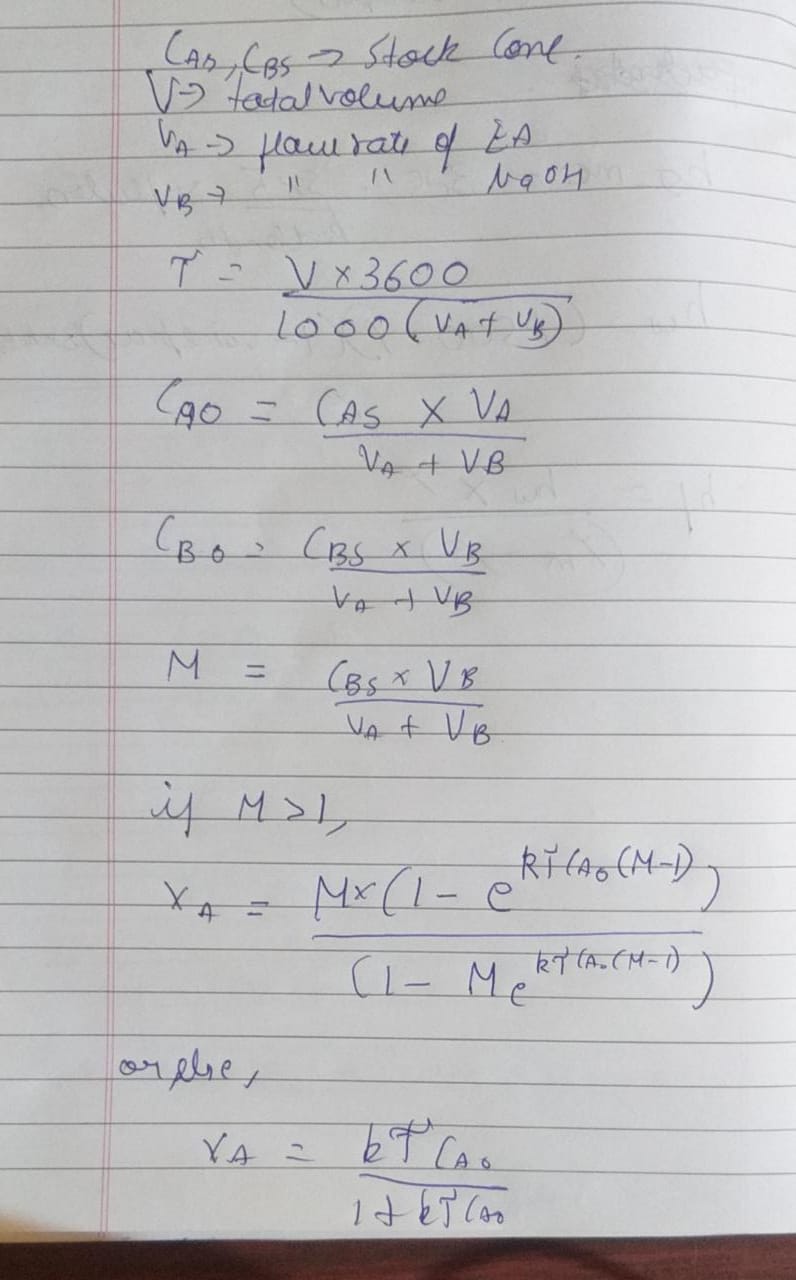 CAS, CBS → Stock Conc.
V → total volume
VA → flow rate of EA
VB → " " NaOH
τ = V × 3600 / 1000 (VA + VB)
CA0 = CAS × VA / VA + VB
CB0 = CBS × VB / VA + VB
M = CBS × VB / VA + VB
if M > 1,
XA = M × (1 - e^kτCA0(M-1)) / (1 - M e^kτCA0(M-1))
or else,
XA = kτCA0 / 1 + kτCA0